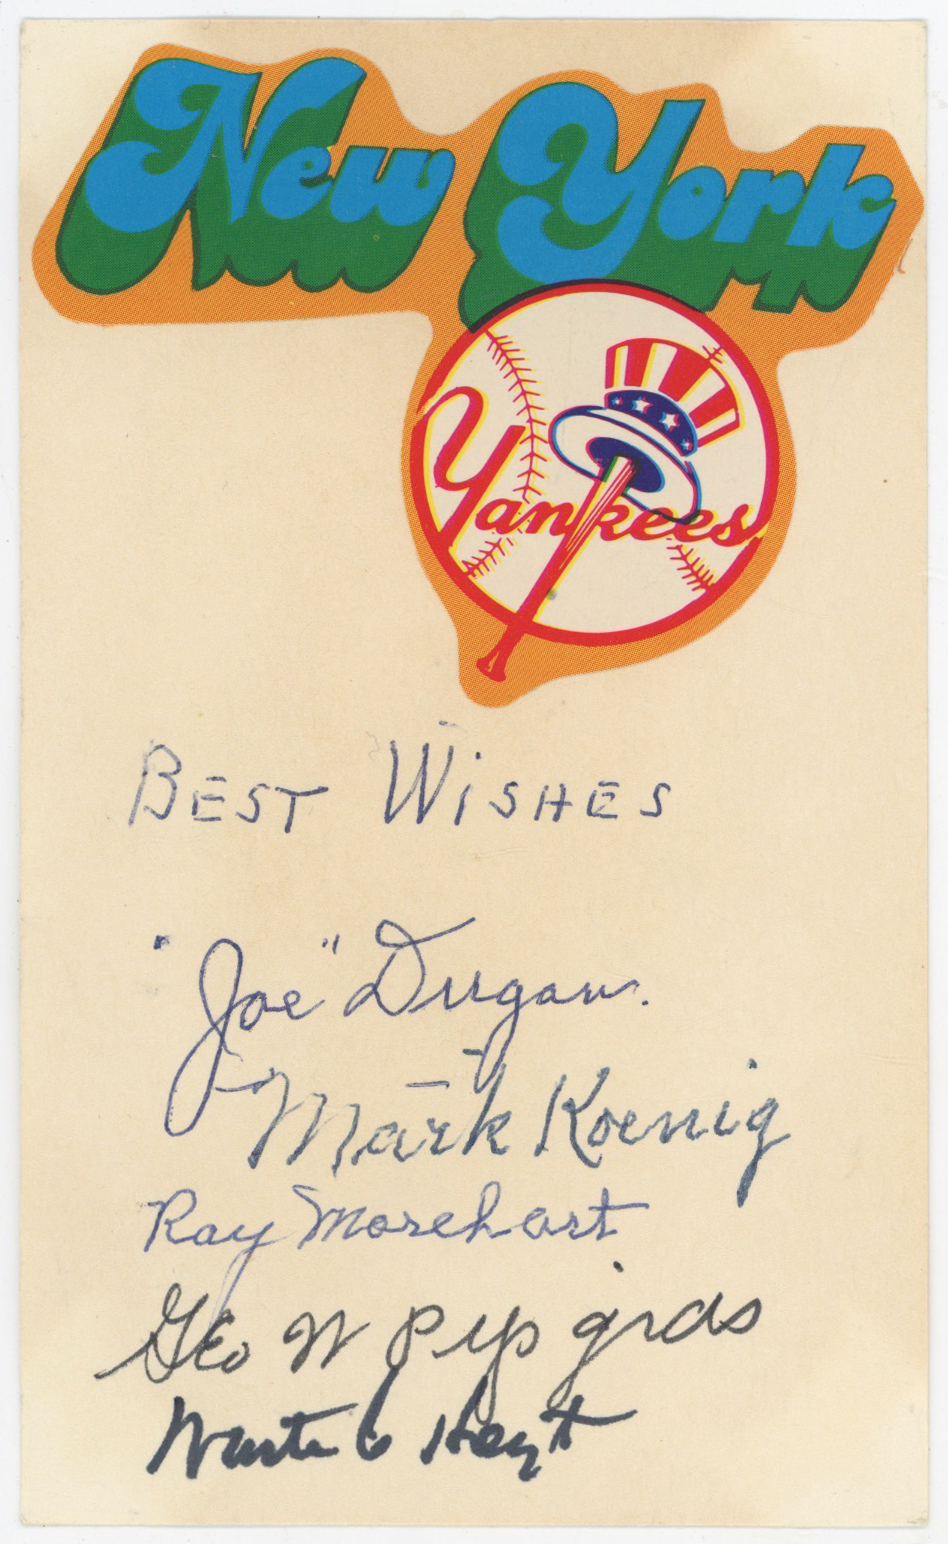 New York
Yankees
BEST WISHES
"Joe" Dugan.
Mark Koenig
Ray Morehart
Geo W Pipgras
Waite C Hoyt